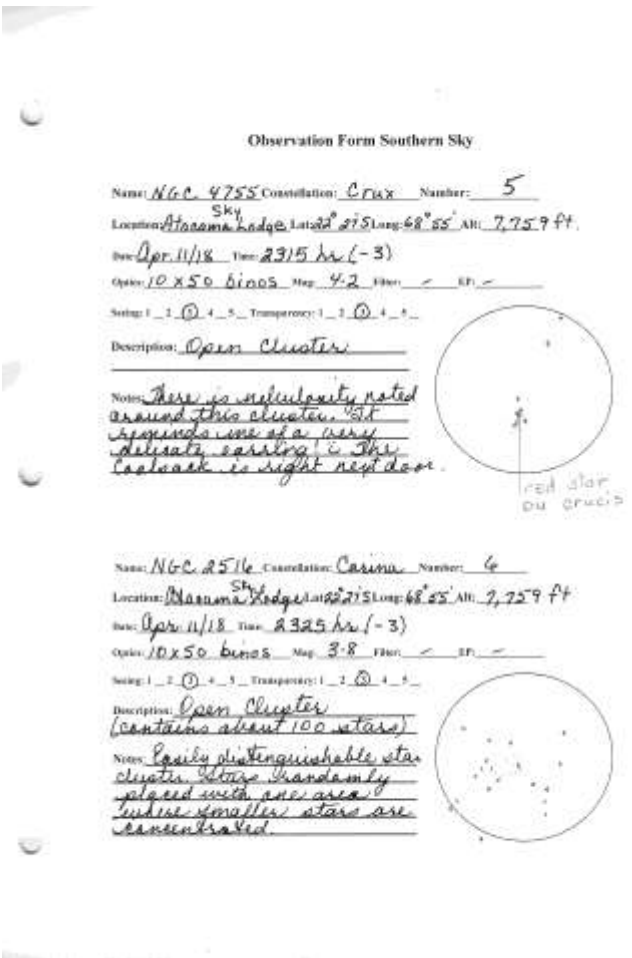 Observation Form Southern Sky
Name: NGC 4755 Constellation: Crux Number: 5
Sky
Location: Atacama Lodge Lat: 22° 27'S Long: 68° 55' Alt: 7,759 ft.
Date: Apr. 11/18 Time: 2315 hr (-3)
Optics: 10 x 50 binos Mag: 4.2 Filter: - EP: -
Seeing: 1 _ 2 ③ _ 4 _ 5 _ Transparency: 1 _ 2 ③ _ 4 _ 5 _
Description: Open Cluster
Notes: There is nebulosity noted
around this cluster. "It
reminds me of a very
delicate earring". The
Coalsack is right next door.
red star
DU Crucis
Name: NGC 2516 Constellation: Carina Number: 6
Sky
Location: Atacama Lodge Lat: 22° 27'S Long: 68° 55' Alt: 7,759 ft
Date: Apr 11/18 Time: 2325 hr (-3)
Optics: 10 x 50 binos Mag: 3.8 Filter: - EP: -
Seeing: 1 _ 2 ③ _ 4 _ 5 _ Transparency: 1 _ 2 ③ _ 4 _ 5 _
Description: Open Cluster
(contains about 100 stars)
Notes: Easily distinguishable star
cluster. Stars randomly
placed with one area
where smaller stars are
concentrated.